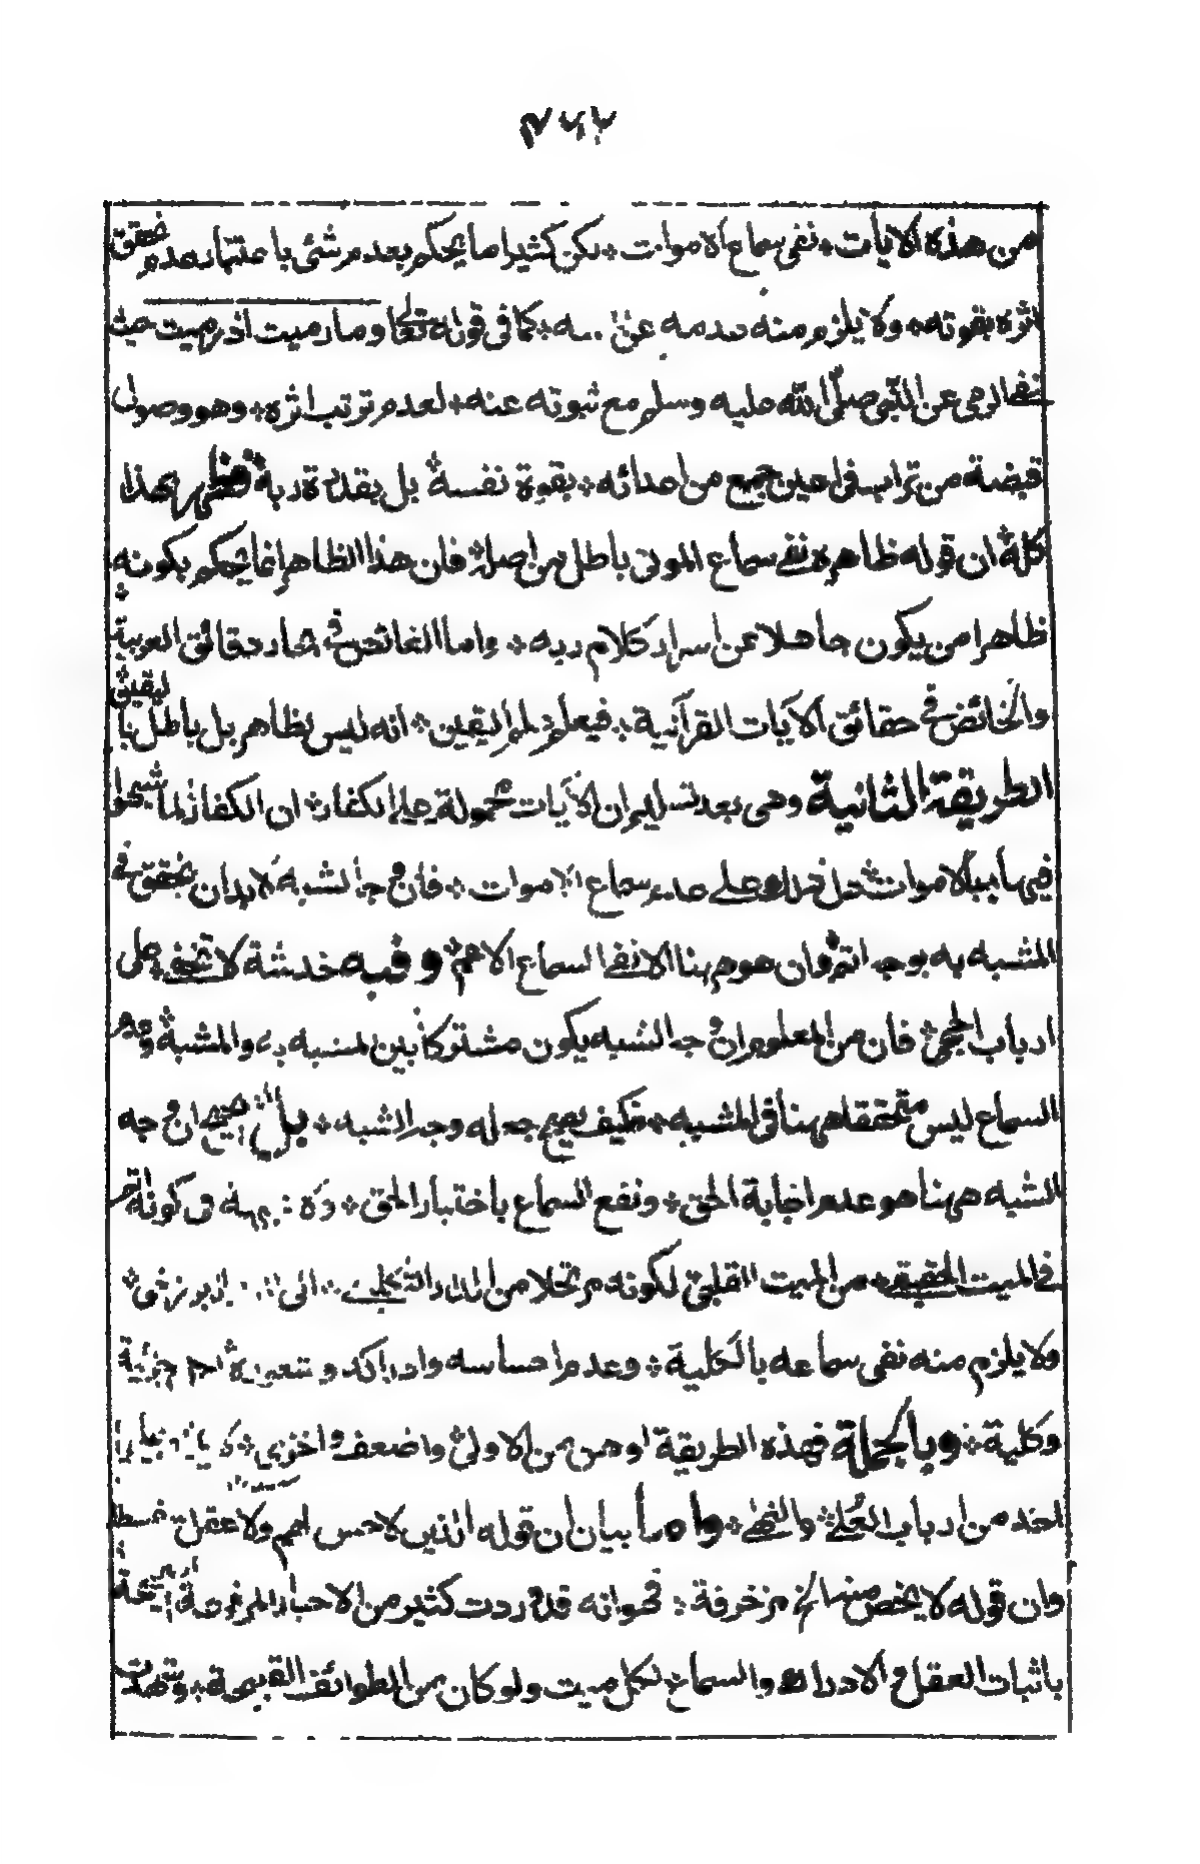 من هذه الايات نفى سماع الاموات لكن كثيرا ما يحكم بعدم شئ باعتبار عدم تحقق
اثره بقوته ولا يلزم منه عدمه عن كما فى قوله تعالى وما رميت اذ رميت حيث
نفى الرمى عن النبى صلى الله عليه وسلم مع ثبوته عنه لعدم ترتب اثره وهو وصول
قبضة من تراب فى اعين جميع من اعدائه بقوة نفسه بل بقدرة ربه فظهر بهذا
كله ان قوله ظاهره نفى سماع الموتى باطل من اصله فان هذا الظاهر انما يحكم بكونه
ظاهرا من يكون جاهلا عن اسرار كلام ربه واما الغائص فى بحار دقائق العربية
والخائض فى حقائق الآيات القرآنية فيعلم علم اليقين انه ليس بظاهر بل باطل باليقين
الطريقة الثانية وهى بعد تسليم ان الآيات محمولة على الكفار ان الكفار لما شبهوا
فيها بالاموات دل ذلك على عدم سماع الاموات فان وجه الشبه لابد ان يتحقق فى
المشبه به بوجه اتم وان هو ههنا الا نفى السماع الاهم وفيه خدشة لا تخفى على
ارباب الحجى فان من المعلوم ان وجه الشبه يكون مشتركا بين المشبه به والمشبه وعدم
السماع ليس متحققا ههنا فى المشبه فكيف يصح جعله وجه الشبه بل الصحيح ان وجه
الشبه ههنا هو عدم اجابة الحق ونفع السماع باختبار الحق ولا فى كونه اتم
فى الميت الحقيقى من الميت القلبى لكونه مرتحلا من الدار التى الى
ولا يلزم منه نفى سماعه بالكلية وعدم احساسه وادراكه وشعوره جزئية
وكلية وبالجملة فهذه الطريقة اوهن من الاولى واضعف واخزى
احد من ارباب العلى والنهى واما بيان ان قوله الذين لا حس لهم ولا عقل
وان قوله لا يخص منها الخ مزخرفة فهو انه قد وردت كثير من الاخبار المرفوعة
باثبات العقل والادراك والسماع لكل ميت ولو كان من الطوائف القبيحة وشهدت